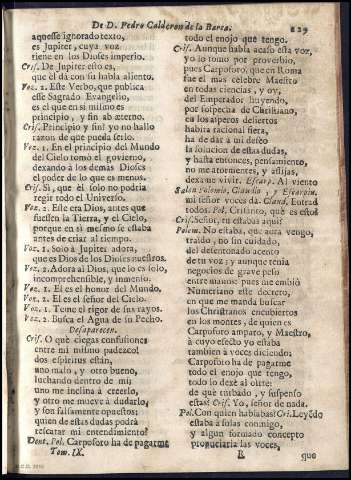 De D. Pedro Calderon de la Barca.
129
aquesse ignorado texto,
es Jupiter, cuya voz
tiene en los Dioses imperio.
Cris. De Jupiter esto es,
que èl dà con su habla aliento.
Voz. 1. Este Verbo, que publica
esse Sagrado Evangelio,
es el que en si mismo es
principio, y fin ab æterno.
Cris. Principio y fin! yo no hallo
razon de que pueda serlo.
Voz. 1. En el principio del Mundo
del Cielo tomò el govierno,
dexando à los demàs Dioses
el poder de lo que es menos.
Cris. Si, que èl solo no podria
regir todo el Universo.
Voz. 2. Este era Dios, antes que
fuessen la Tierra, y el Cielo,
porque en sì mesmo se estaba
antes de criar al tiempo.
Voz. 1. Solo à Jupiter adora,
que es Dios de los Dioses nuestros.
Voz. 2. Adora al Dios, que lo es solo,
incomprehensible, y inmenso.
Voz. 1. El es el honor del Mundo.
Voz. 2. El es el señor del Cielo.
Voz. 1. Teme el rigor de sus rayos.
Voz. 2. Busca el Agua de su Pecho.
Desaparecen.
Cris. O què ciegas confusiones
entre mi mismo padezco!
dos espiritus en mì,
uno malo, y otro bueno,
luchando dentro de mì;
uno me inclina à creerlo,
y otro me mueve à dudarlo,
y son falsamente opuestos:
quien de estas dudas podrà
rescatar mi entendimiento?
Dent. Pol. Carpoforo ha de pagarme
Tom. IX.
todo el enojo que tengo.
Cris. Aunque habla acaso esta voz,
yo lo tomo por proverbio,
pues Carpoforo, que en Roma
fue el mas celebre Maestro
en todas ciencias, y oy,
del Emperador huyendo,
por sospecha de Christiano,
en los asperos desiertos
habita racional fiera,
ha de dar à mi deseo
la solucion de estas dudas,
y hasta entonces, pensamiento,
no me atormentes, y aflijas,
dexame vivir. Escarp. Al viento
Salen Polemio, Claudio, y Escarpin.
mi señor voces dà. Claud. Entrad
todos. Pol. Crisanto, què es esto?
Cris. Señor, tu estabas aqui?
Polem. No estaba, que aora vengo,
traìdo, no sin cuidado,
del desentonado acento
de tu voz; y aunque tenia
negocios de grave peso
entre manos: pues me embiò
Numeriano este decreto,
en que me manda buscar
los Christianos encubiertos
en los montes, de quien es
Carpoforo amparo, y Maestro,
à cuyo efecto yo estaba
tambien à voces diciendo:
Carpoforo ha de pagarme
todo el enojo que tengo,
todo lo dexè al oìrte:
de què turbado, y suspenso
estàs? Cris. Yo, señor, de nada.
Pol. Con quien hablabas? Cri. Leyẽdo
estaba à solas conmigo,
y algun formado concepto
pronuciaria las voces,
R
que